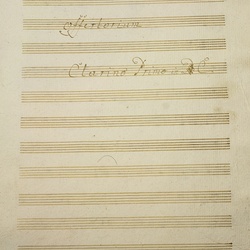 Offertorium
Clarino Primo in C.